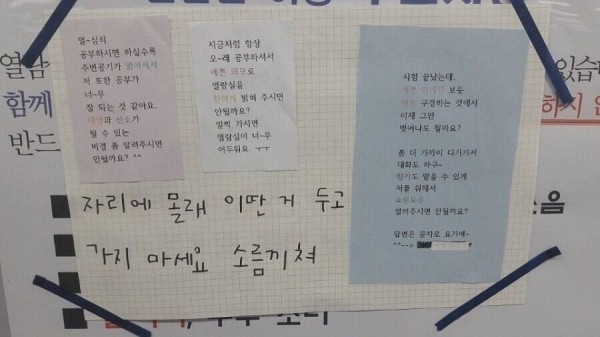 열~심히
공부하시면 하실수록
주변공기가 맑아져서
저 또한 공부가
너~무
잘 되는 것 같아요.
산소가
될 수 있는
비결 좀 알려주시면
안될까요? ^^
지금처럼 항상
오~래 공부하셔서
예쁜 외모로
열람실을
환하게 밝혀 주시면
안될까요?
일찍 가시면
열람실이 너~무
어두워요 ㅜㅜ
시험 끝났는데,
예쁜 보듯
구경하는 것에서
이제 그만
벗어나도 될까요?
좀 더 가까이 다가가서
대화도 하구~
향기도 맡을 수 있게
저를 위해서
열어주시면 안될까요?
답변은 문자로 요기에~
^^-->
자리에 몰래 이딴 거 두고
가지 마세요 소름끼쳐
열람
함께
반드
있습
하지 않
음